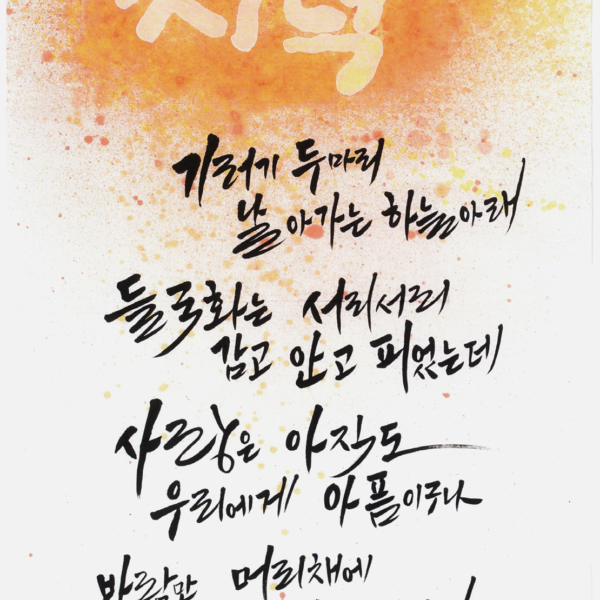 저녁
기러기 두마리
날아가는 하늘아래
들국화는 서리서리
감고 안고 피었는데
사랑은 아직도
우리에게 아픔이구나
바람만 머리채에